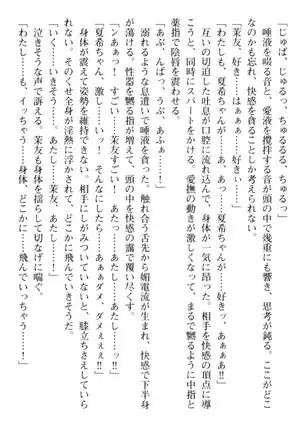 「じゅっ、じゅるっ。ちゅるるる、ちゅるっ」
　唾液を啜る音と、愛液を攪拌する音が頭の中で幾重にも響き、思考が鈍る。ここがどこ
なのかも忘れ、快感を貪ることしか考えられない。
「茉友、好き……はぁぁぁっ！　好きっ……」
「わたしも、夏希ちゃんが……好きっ、あぁぁあ！」
　互いの切迫した吐息が口腔に流れ込んで、身体が一気に昂った。相手を快感の頂点に導
こうと、同時にスパートをかける。愛撫の動きが激しくなって、まるで嬲るように中指と
薬指で陰唇を震わせる。
「あっ、んぱっ……う、あふぁっ！」
　溺れるような息遣いで唾液を貪った。触れ合う舌先から媚電流が生まれ、快感で下半身
が蕩ける。性器を嬲る指が増えて、頭の中を快感の靄で覆い尽くす。
「ンあぁっ！　すごい……茉友すごいっ！　あたし……あたし……ッ!!」
「夏希ちゃん、激し……いッ！　そんなにしたら……あ、ダメ、ダメぇぇっ!!」
　身体が震えて姿勢を維持できない。相手にしがみついていないと、膝立ちさえしていら
れない。そのくせ全身が淫熱に浮かされて、どこかに飛んでいきそうだ。
「いく……イきそう……あたし……茉友、あたし……！」
　泣きそうな声で訴える。茉友も身体を揺らして切なげに喘ぐ。
「わたし……も、イッちゃう……身体、どこかに……飛んでいっちゃう……！」